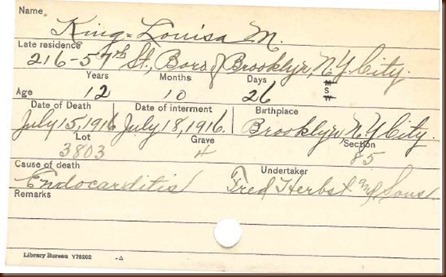 Name
King-Louisa M.
Late residence
216-57th St., Boro of Brooklyn, N.Y. City.
Years Months Days M
Age 12 10 26 S
W
Date of Death Date of interment Birthplace
July 15, 1916 July 18, 1916. Brooklyn, N.Y. City.
Lot Grave Section
3803 4 85
Cause of death Undertaker
Endocarditis Fred Herbst and Sons
Remarks
Library Bureau V76202